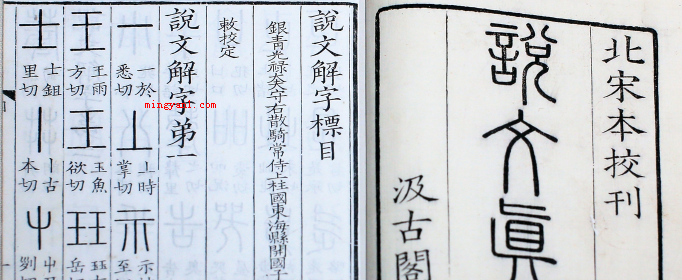 北宋本挍刊
說文眞
汲古閣
說文解字標目
銀青光祿大夫守右散騎常侍上柱國東海縣開國子
敕校定
說文解字弟一
一於
悉切
丄
丄時
掌切
示
王
王雨
方切
玉
玉魚
欲切
玨
士
士鉏
里切
丨
丨古
本切
屮
mingyanl.com